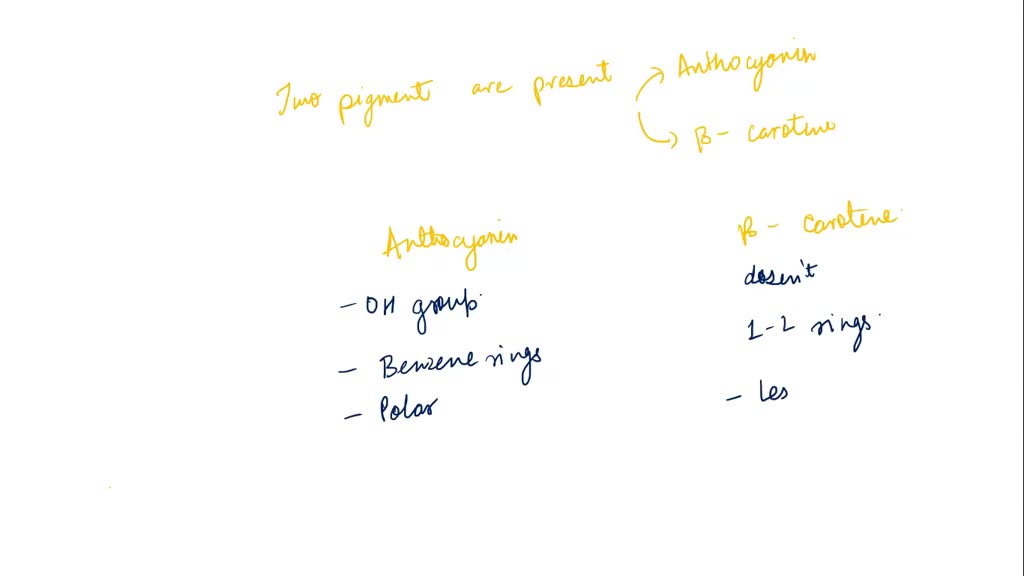 Two pigments are present → Anthocyanin
→ β - carotene
Anthocyanin
β - carotene
- OH group
doesn't
- Benzene rings
1-2 rings
- Polar
- Les